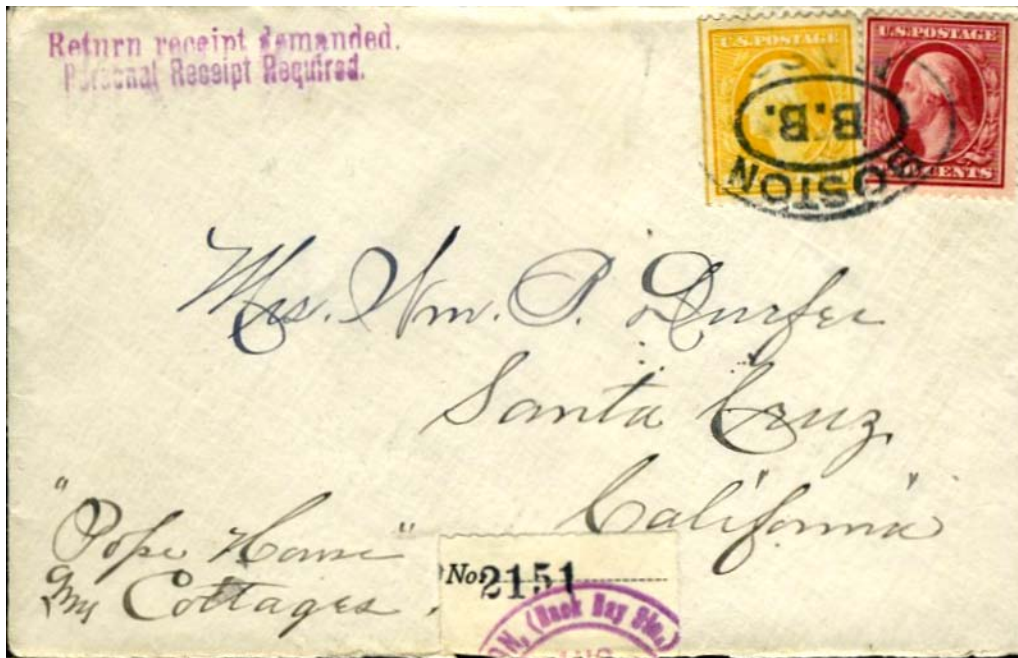 Return receipt demanded.
Personal Receipt Required.
U.S. POSTAGE
U.S. POSTAGE
CENTS
BOSTON
B.B.
Mrs. Wm. P. Durfee
Santa Cruz,
California
"Pope House"
Cottages.
No. 2151
ON, (Back Bay Sta.)
AUG